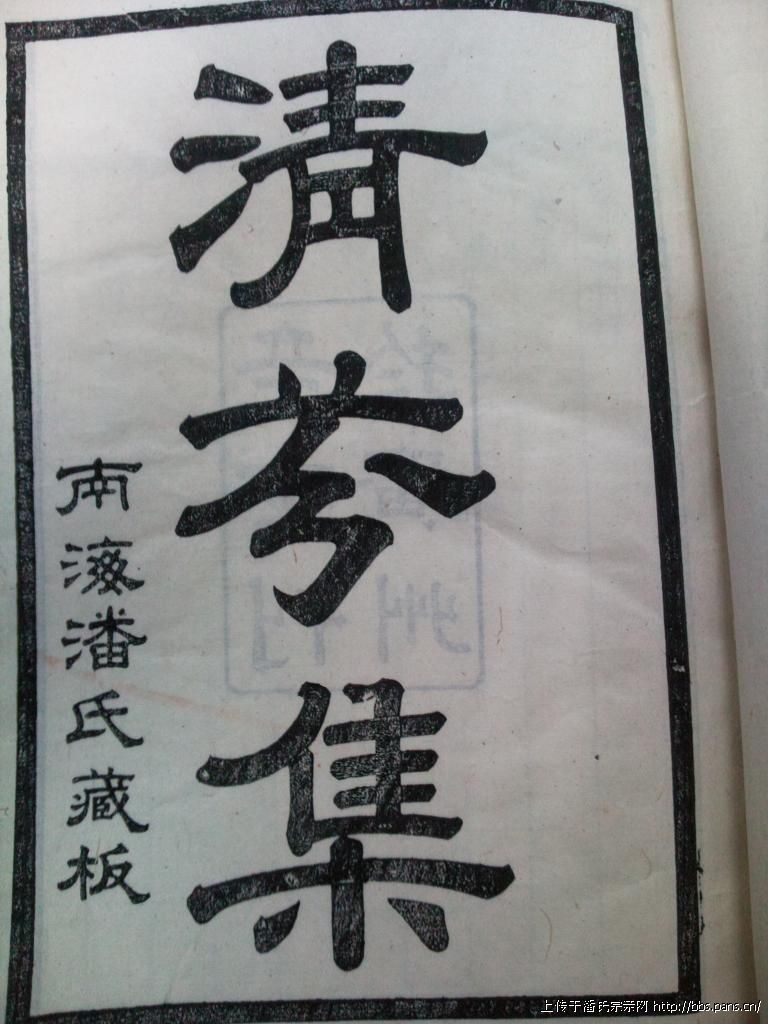 清芬集
南海潘氏藏板
上传于潘氏宗亲网 http://bbs.pans.cn/